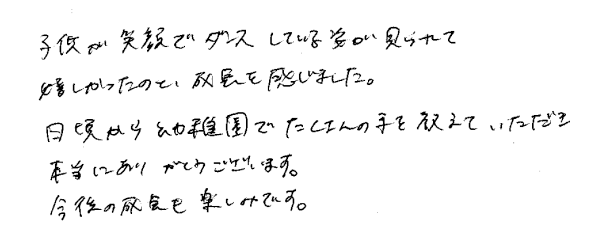 子供が笑顔でダンスしている姿が見られて
嬉しかったのと、成長を感じました。
日頃から幼稚園でたくさんの事を教えていただき
本当にありがとうございます。
今後の成長も楽しみです。